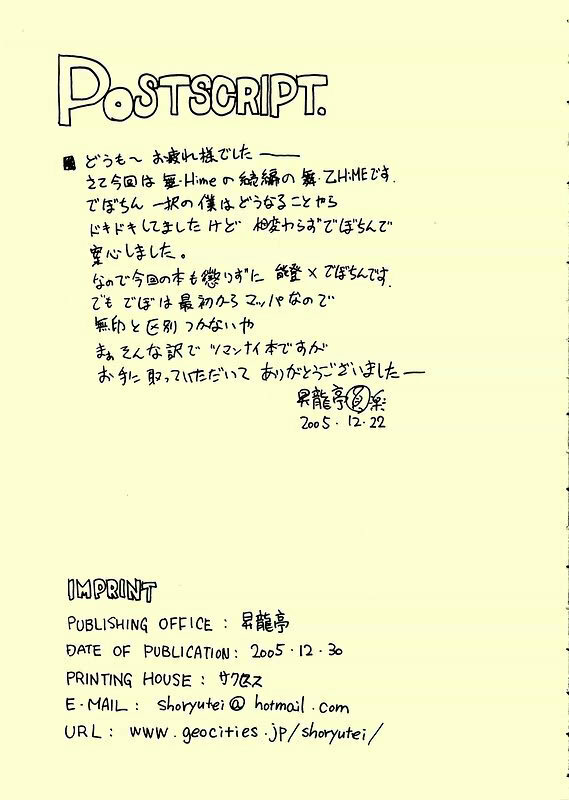 POSTSCRIPT.
どうも〜 お疲れ様でした ――
さて今回は 舞-Himeの 続編の 舞・乙HiMEです.
でぼちん 一択の 僕は どうなることやら
ドキドキしてました けど 相変わらず でぼちんで
安心しました。
なので今回の本も 懲りずに 能登×でぼちんです.
でも でぼは 最初から マッパなので
無印と 区別 つかないや
まぁ そんな 訳で ツマンナイ本ですが
お手に 取っていただいて ありがとうございました――
昇龍亭 楽
2005・12・22
IMPRINT
PUBLISHING OFFICE : 昇龍亭
DATE OF PUBLICATION: 2005・12・30
PRINTING HOUSE : サクセス
E-MAIL : shoryutei@hotmail.com
URL : www.geocities.jp/shoryutei/